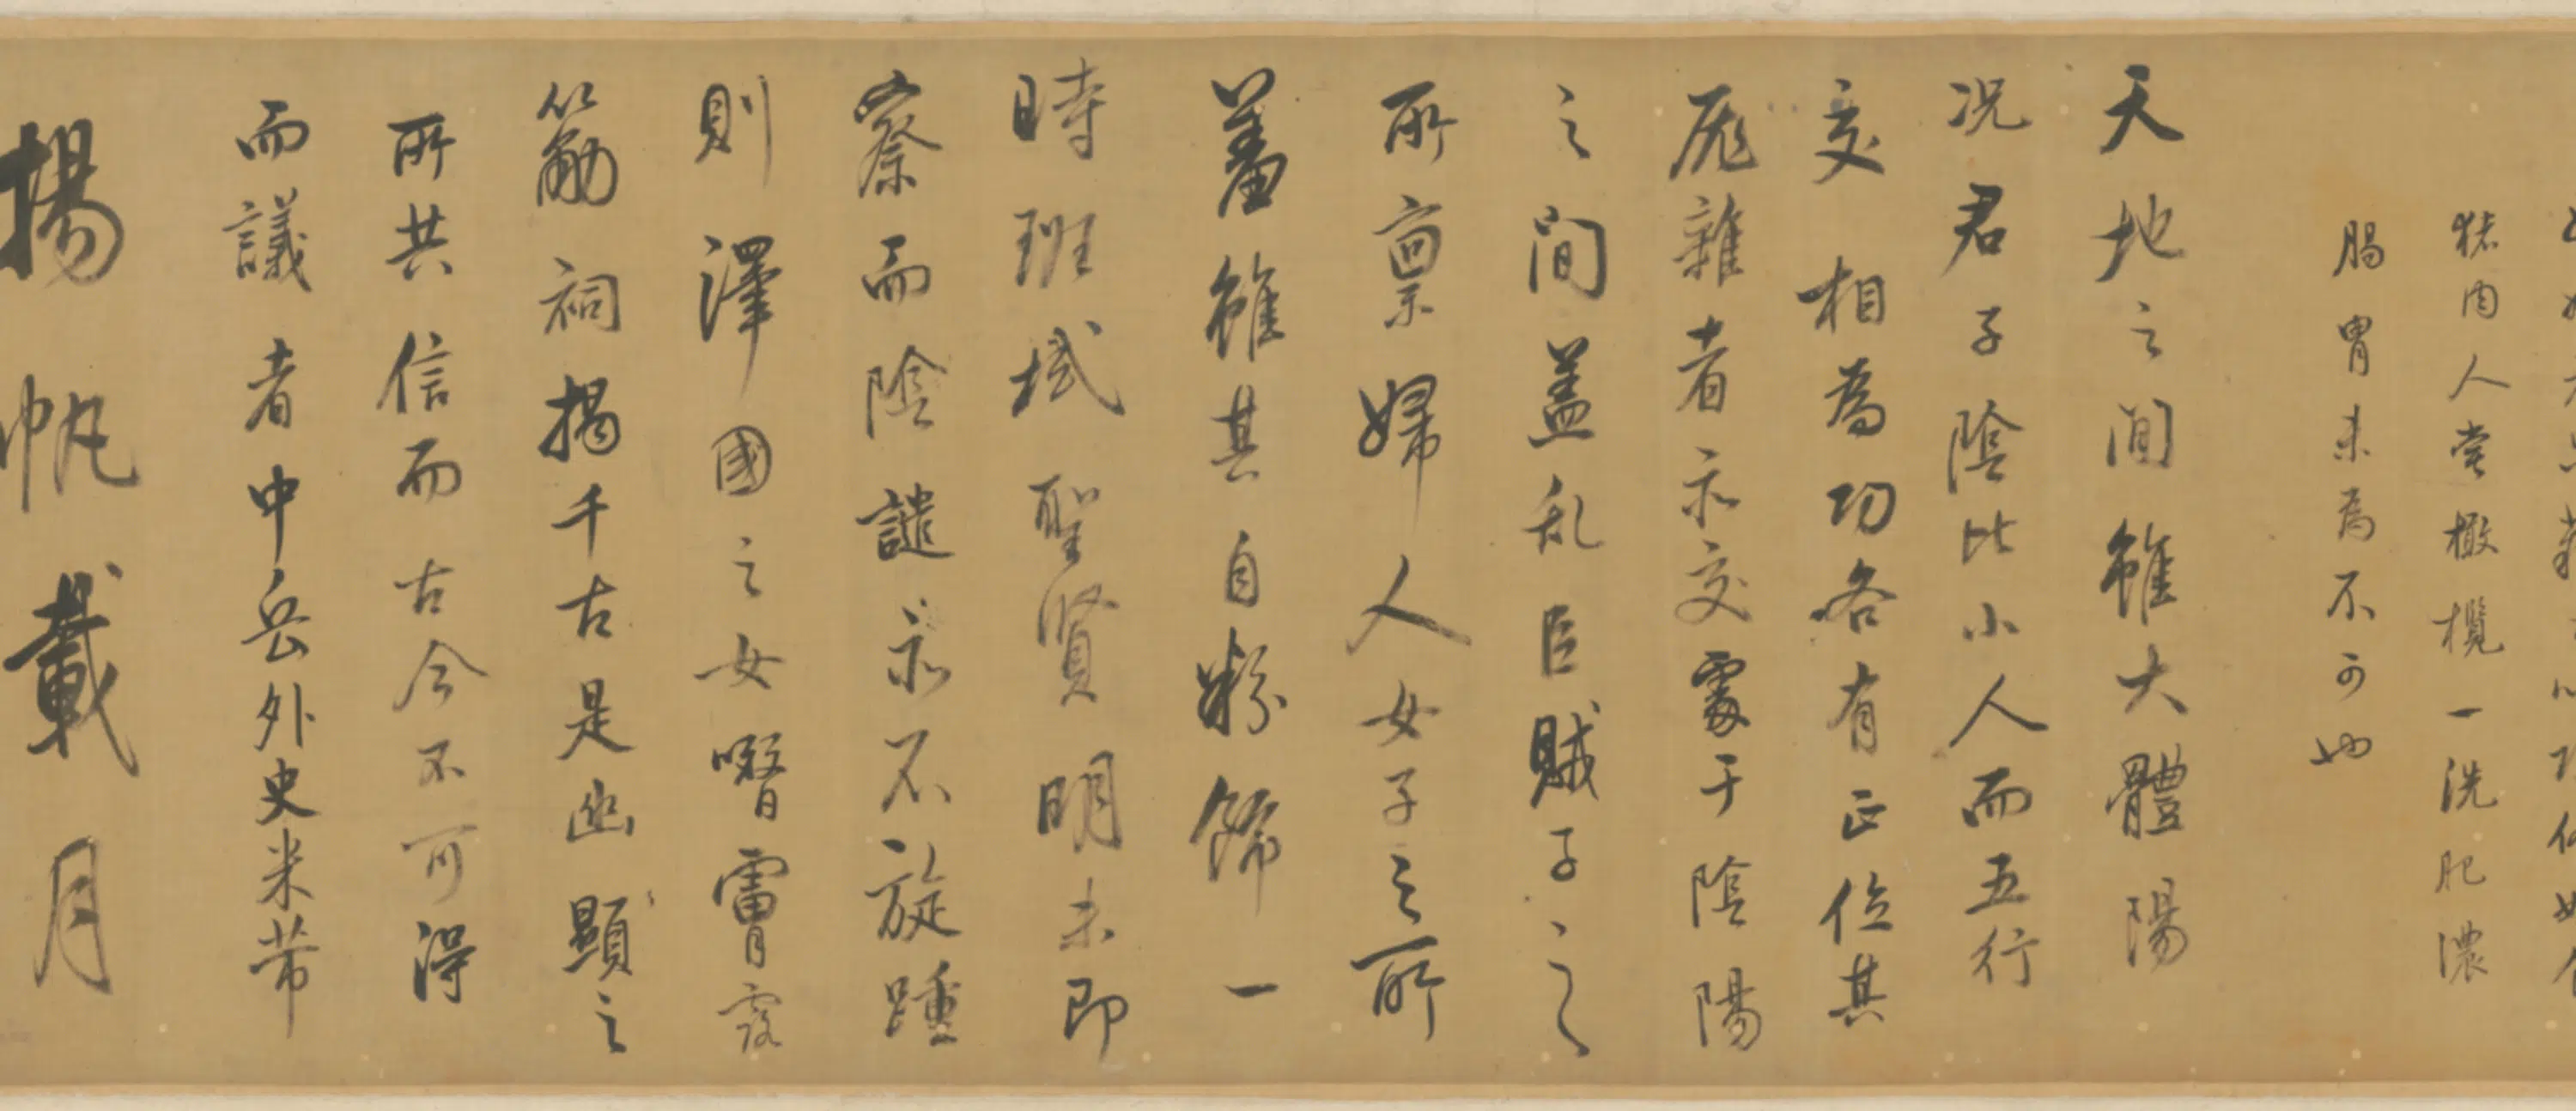 猪肉人嘗橄欖一洗肥濃
腸胃未為不可也
天地之間雖大體陽
况君子陰比小人而五行
交相為功各有正位其
厖雜者亦交處于陰陽
之間盖乱臣賊子之
所禀婦人女子之所
羞雖其自粉飾一
時班域聖賢明未即
察而陰譴亦不旋踵
則澤國之女噆膚露
筋祠揭千古是幽顯之
所共信而古今不可得
而議者中岳外史米芾
揚帆載月